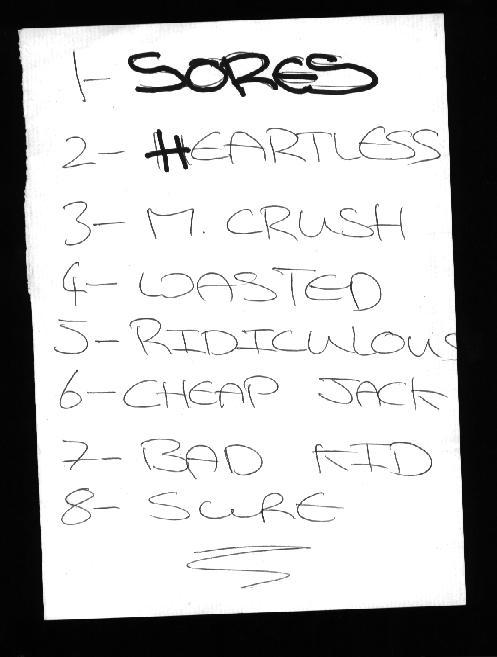 1- SORES
2- HEARTLESS
3- M. CRUSH
4- WASTED
5- RIDICULOUS
6- CHEAP JACK
7- BAD KID
8- SURE